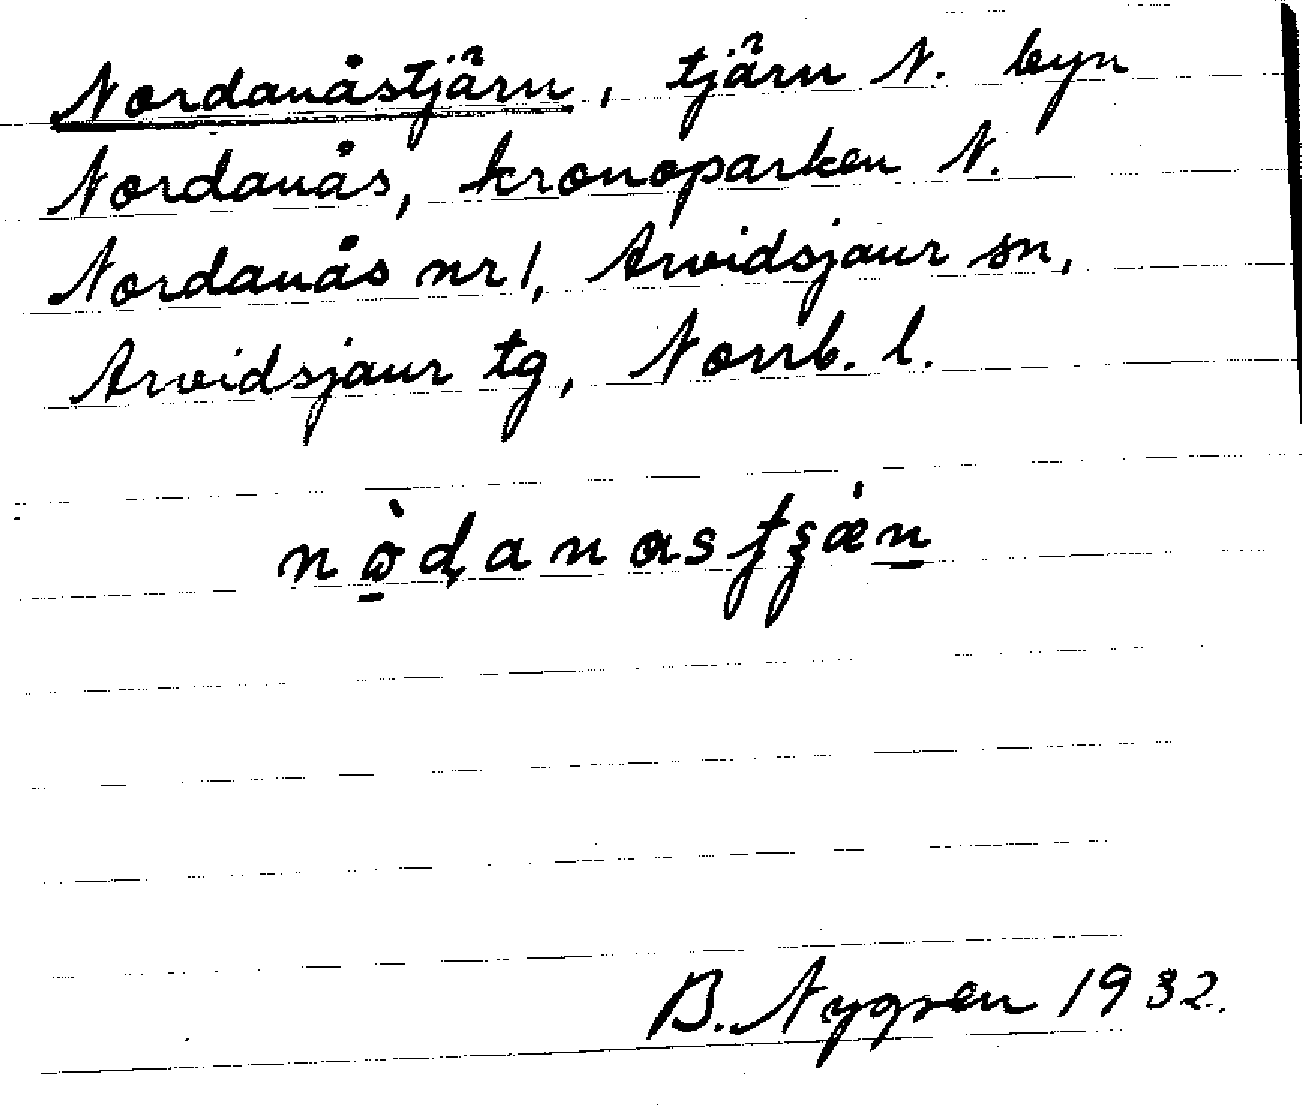 Nordanåstjärn, tjärn N. byn
Nordanås, kronoparken N.
Nordanås nr 1, Arvidsjaur sn,
Arvidsjaur tg, Norrb. l.
B. Nygren 1932.